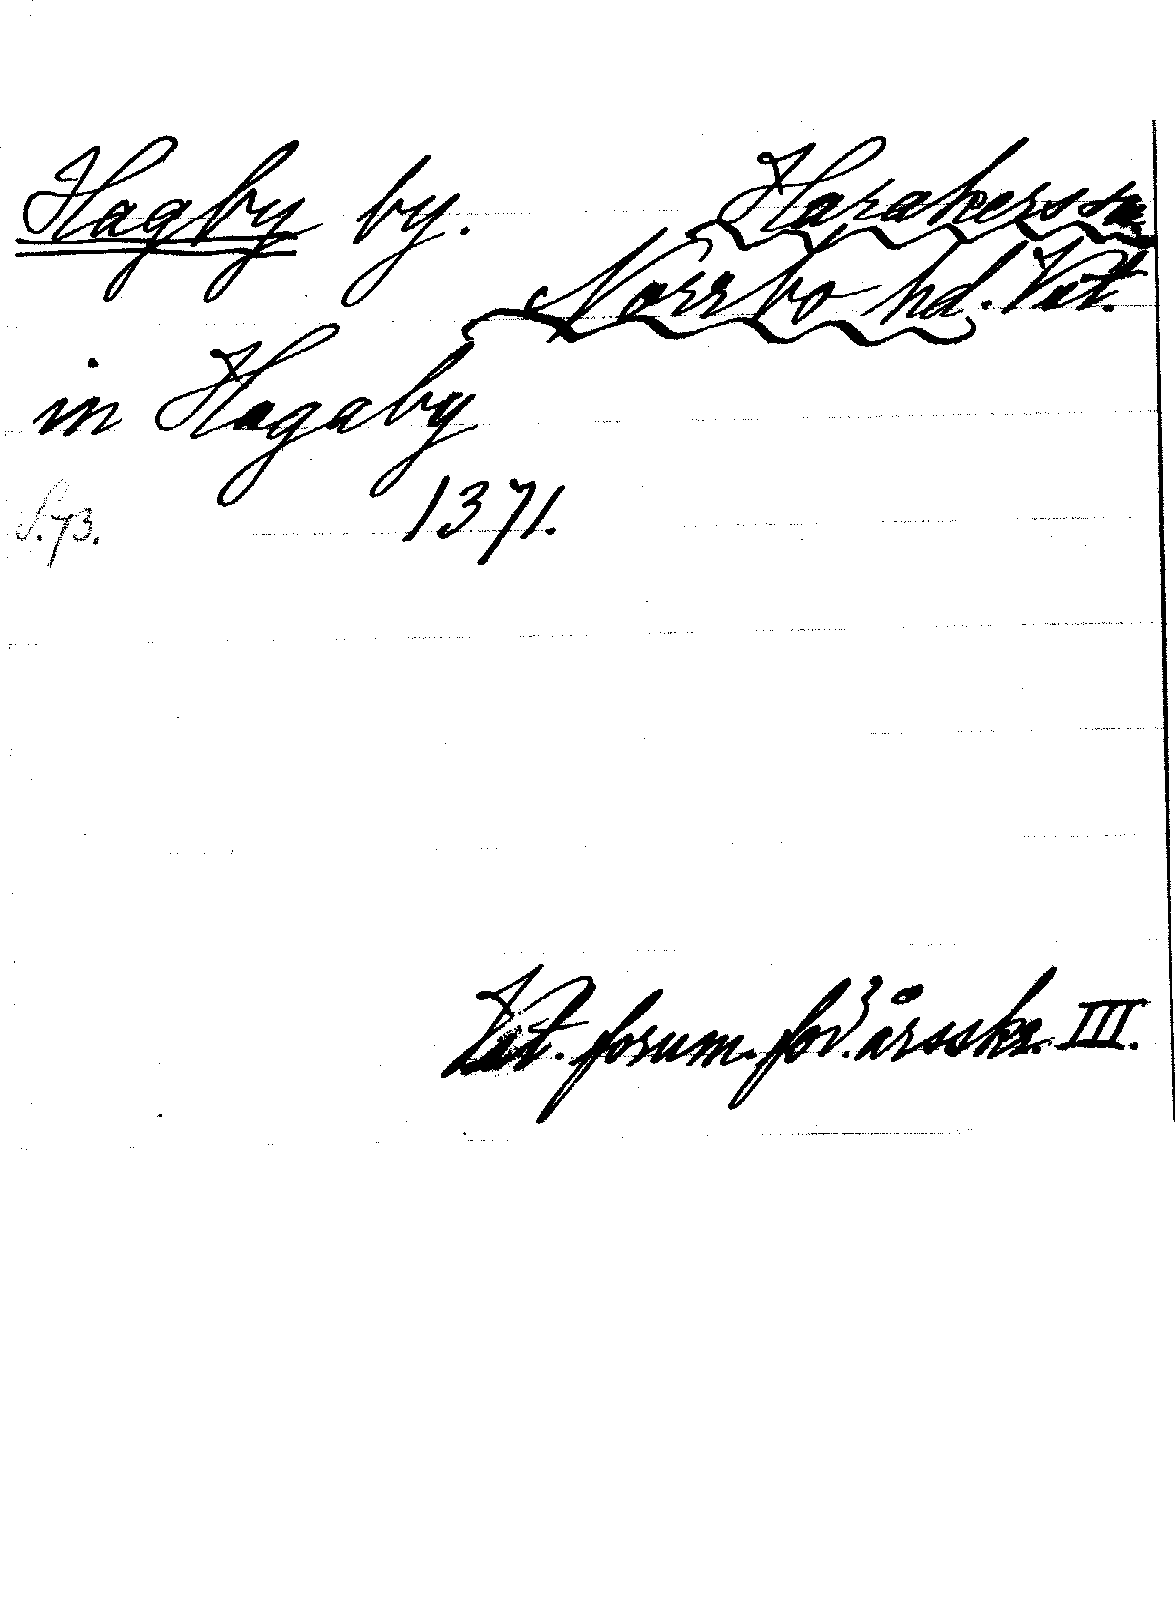 Hagby by. Harakers sn
Norrbo hd. Vst.
in Hagaby
S. 73. 1371.
Vst. fornm. för. årsskr. III.